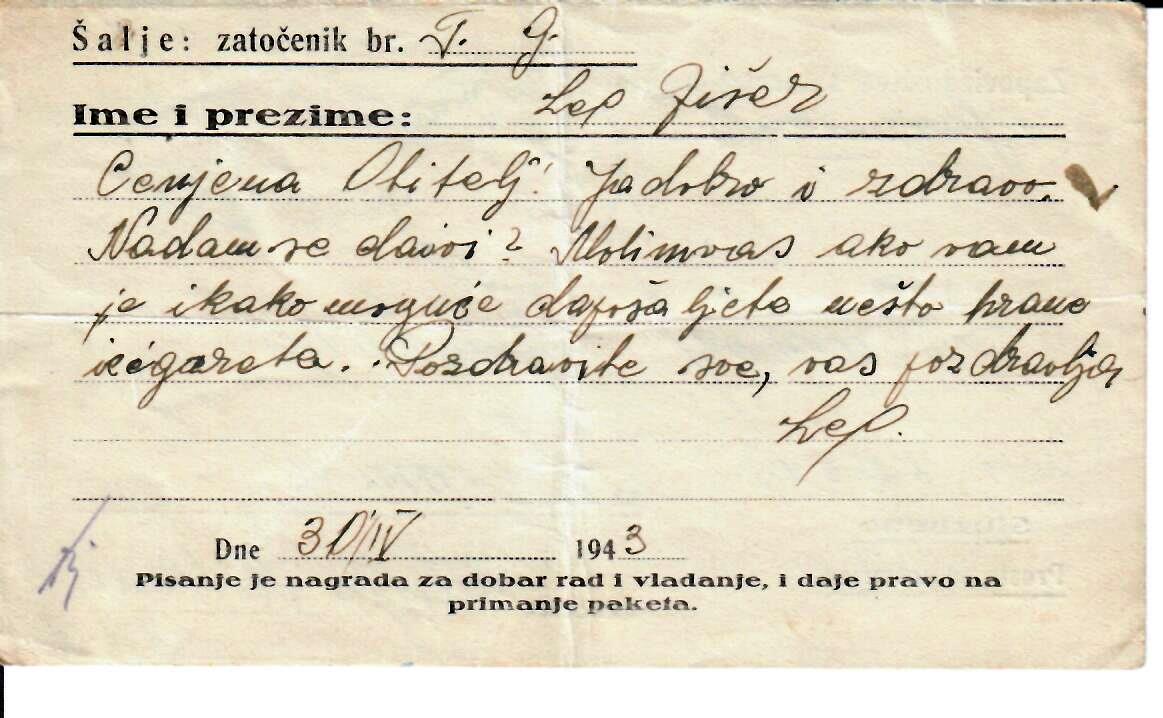 Šalje: zatočenik br. T. G.
Ime i prezime: Lep Fišer
Cenjena Obitelj! Ja dobro i zdravo.
Nadam se da i vi? Molim vas ako vam
je ikako moguće da pošaljete nešto hrane
i cigareta. Pozdravite sve, vas pozdravlja
Lep.
Dne 30/IV 1943
Pisanje je nagrada za dobar rad i vladanje, i daje pravo na
primanje paketa.